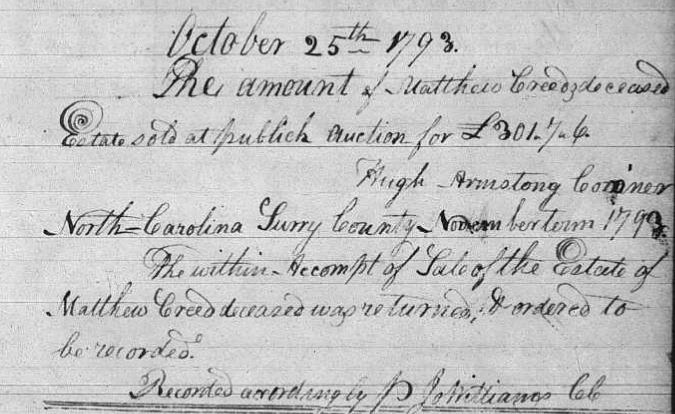 October 25th 1793.
The amount of Matthew Creeds deceased
Estate sold at publick auction for £301.7.6.
Hugh Armstong Coroner
North=Carolina Surry County November term 1793
The within Accompt of Sale of the Estate of
Matthew Creed deceased was returned, & ordered to
be recorded.
Recorded according by Jo Williams CC